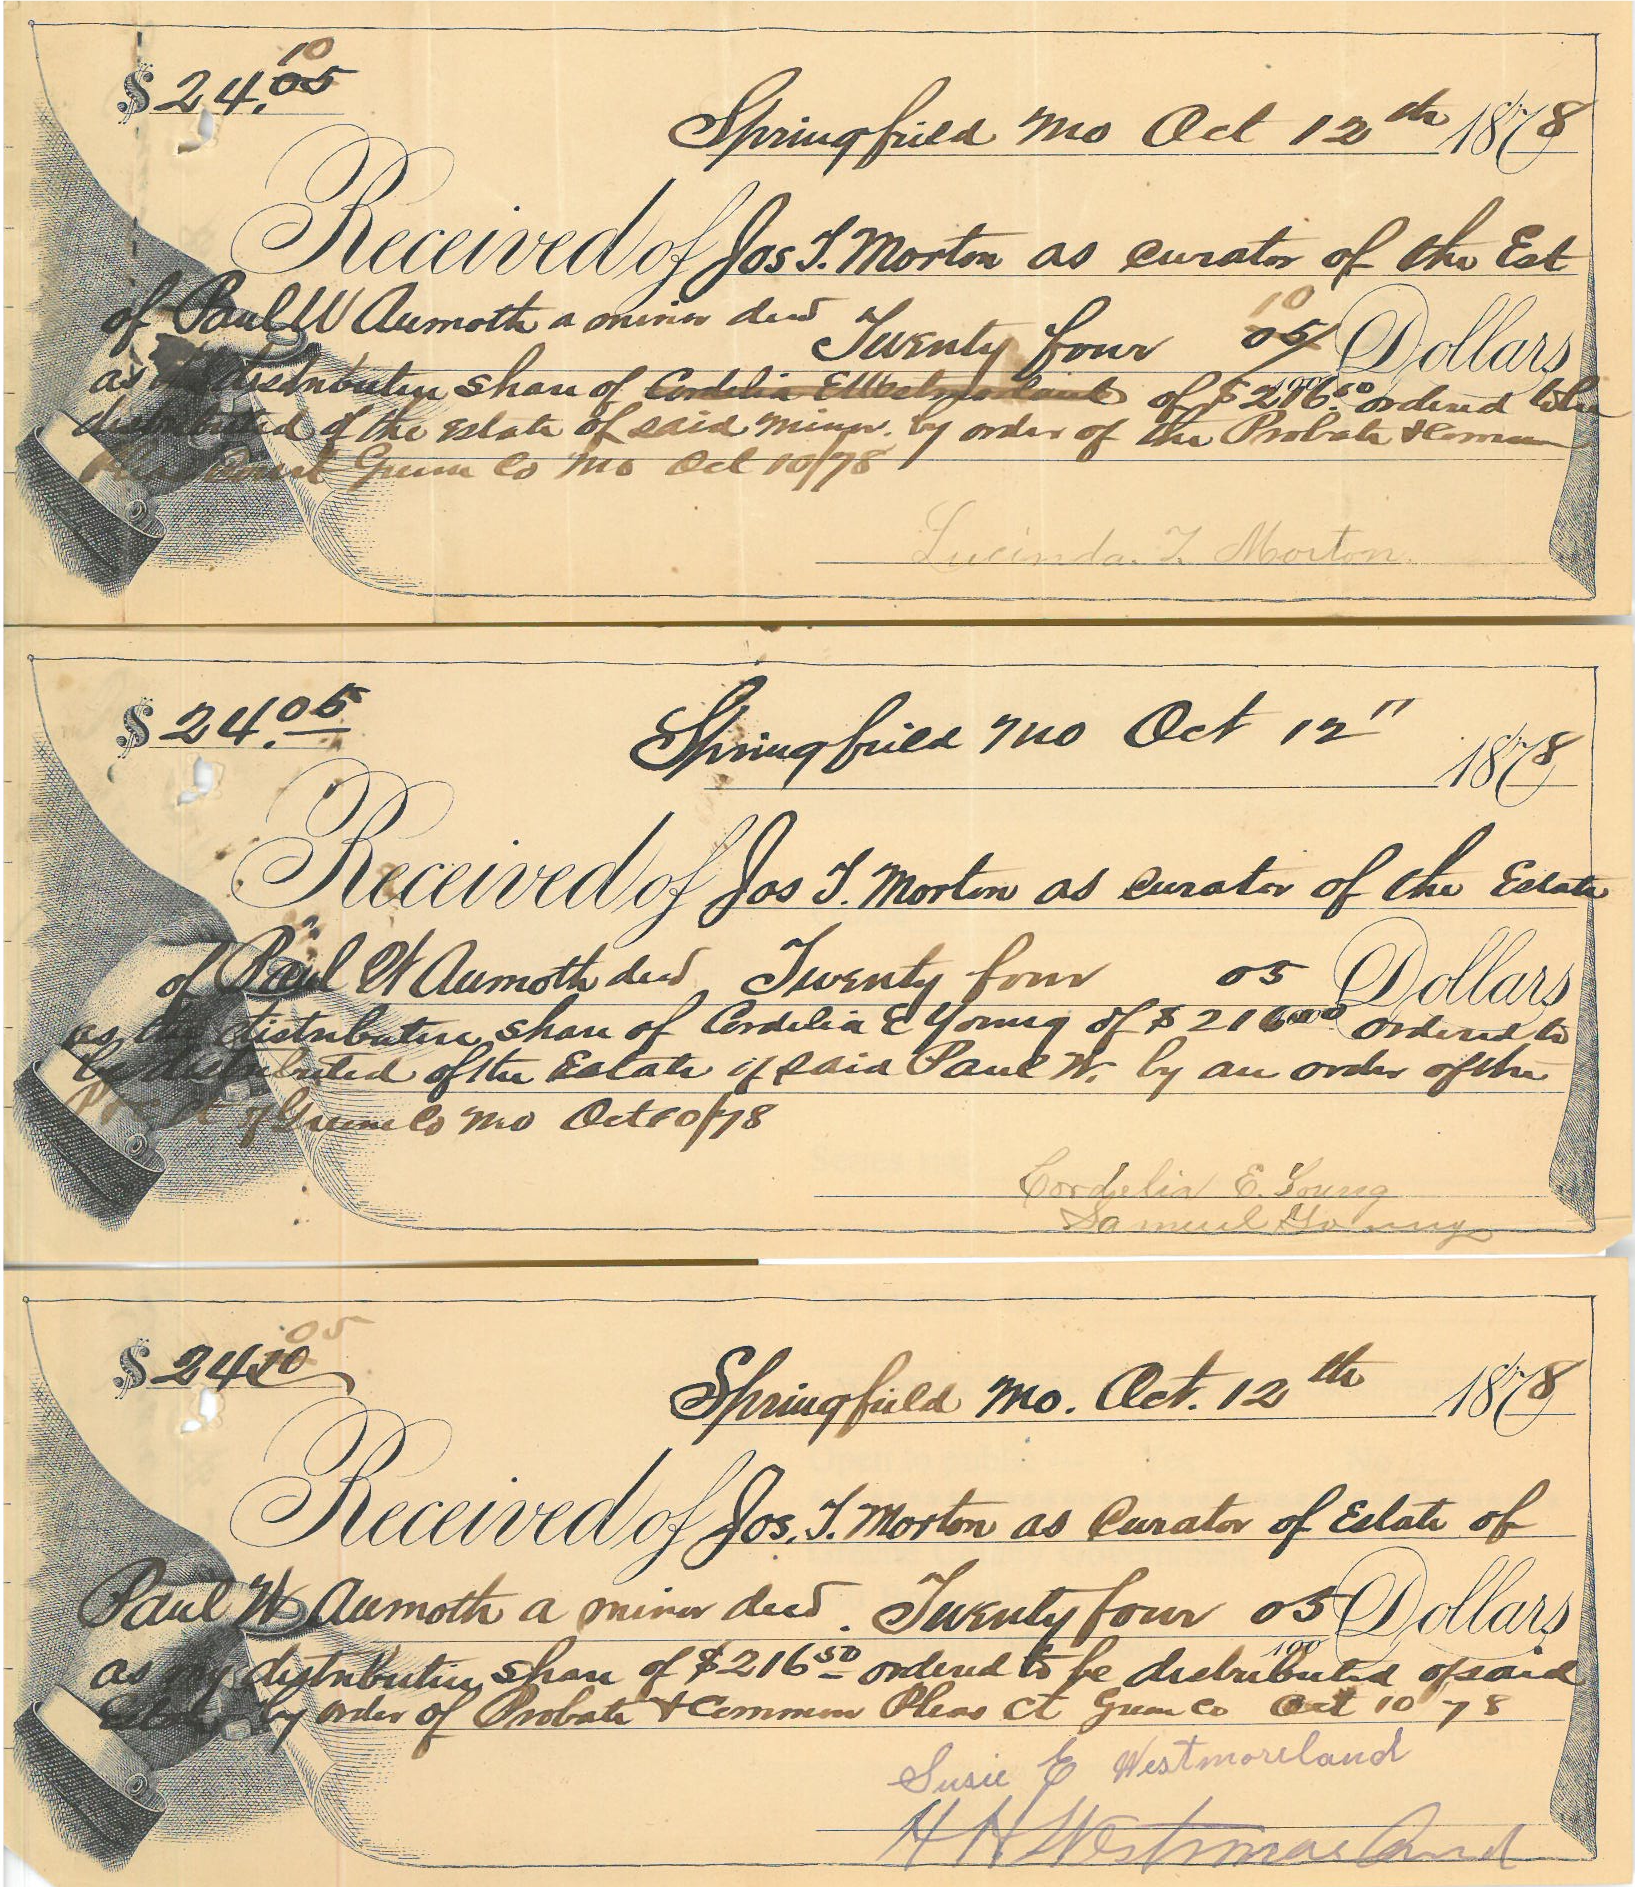 10
$ 24.05
Springfield Mo Oct 12th 1878
Received of Jos T. Morton as curator of the Est
of Paul W Aumoth a minor decd Twenty four 10 05/ Dollars
as distributive share of Cordelia E Westmorland of $216.50 ordered to be
distributed of the estate of said minor. by order of the Probate & Common
Pleas Court Green Co Mo Oct 10/78
Lucinda. T. Morton
$ 24.05
Springfield Mo Oct 12" 1878
Received of Jos T. Morton as curator of the Estate
of Paul W Aumoth decd Twenty four 05 Dollars
as distributive share of Cordelia E Young of $ 216 ordered to
be distributed of the Estate of said Paul W. by an order of the
of Green Co Mo Oct 10/78
Cordelia E. Young
Samuel Young
05
$ 24 10
Springfield Mo. Oct. 12th 1878
Received of Jos. T. Morton as Curator of Estate of
Paul W Aumoth a minor decd. Twenty four 05 Dollars
100
as my distributive share of $216 50 ordered to be distributed of said
Estate by order of Probate & Common Pleas Ct Green Co Oct 10 78
Susie E Westmoreland
H H Westmoreland